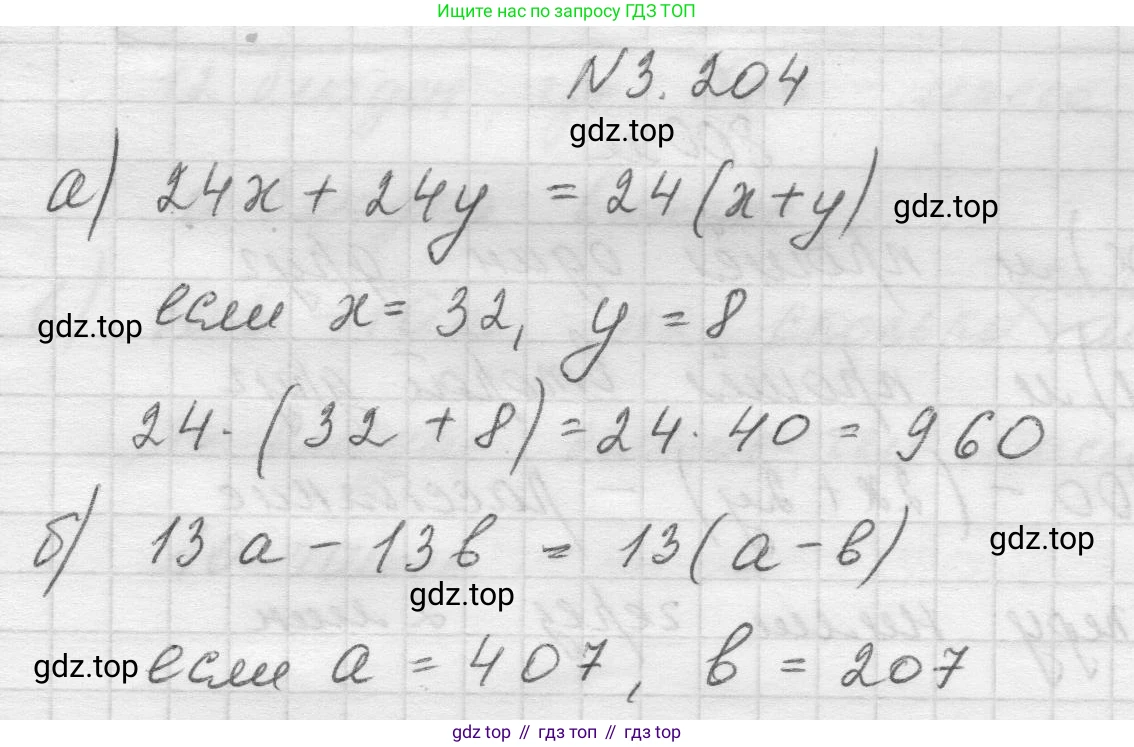 Ищите нас по запросу ГДЗ ТОП
N 3.204
gdz.top
а) 24x + 24y = 24(x+y)
gdz.top
если x = 32, y = 8
gdz.top
24·(32 + 8) = 24·40 = 960
б) 13a - 13b = 13(a-b)
gdz.top
gdz.top
если a = 407, b = 207
gdz.top
gdz top // гдз топ // gdz top